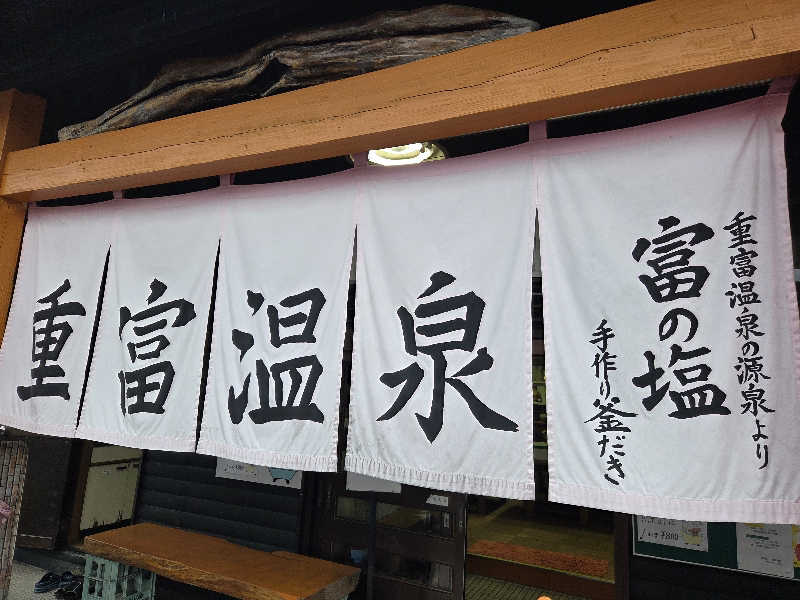 重富温泉
重富温泉の源泉より
富の塩
手作り釜だき